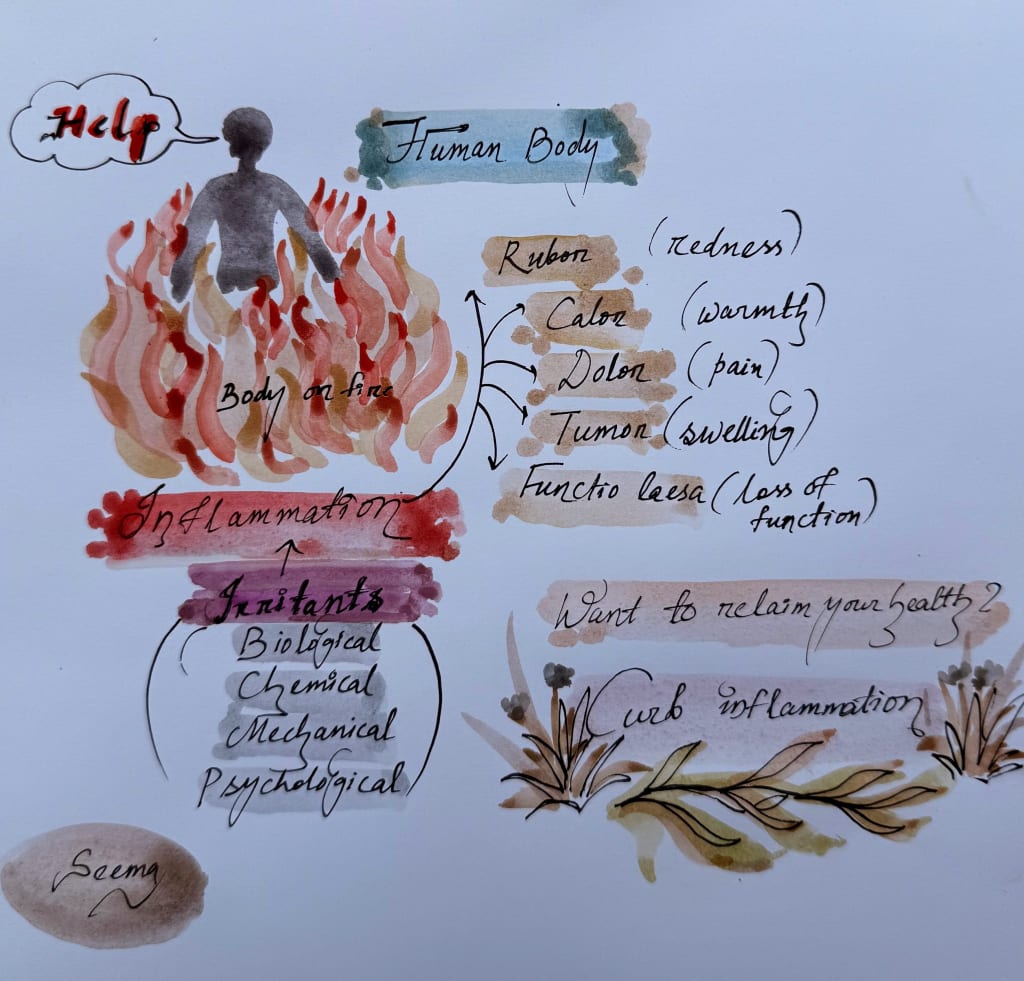 Help
Human Body
Rubor (redness)
Calor (warmth)
Dolor (pain)
Tumor (swelling)
Functio laesa (loss of
function)
Body on fire
Inflammation
Irritants
Biological
Chemical
Mechanical
Psychological
Want to reclaim your health?
Curb inflammation
Seema